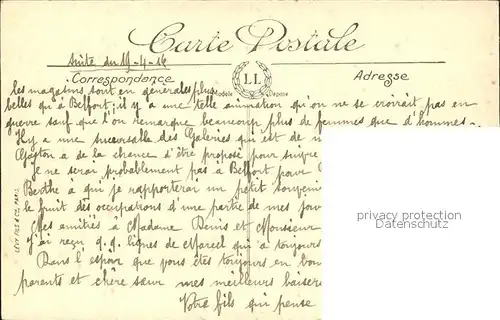 Carte Postale
Suite du 19-4-16
Correspondance
LL
Modèle Déposé
Adresse
les magasins sont en générales plus
belles qu'à Belfort; il y a une telle animation qu'on ne se croirait pas en
guerre sauf que l'on remarque beaucoup plus de femmes que d'hommes.
Il y a une succursale des Galeries qui est de
a de la chance d'être proposé pour suivre
Je ne serai probablement pas à Belfort pour
Berthe à qui je rapporterai un petit souvenir
le fruit des occupations d'une partie de mes
Mes amitiés à Madame Denis et Monsieur
j'ai reçu q.q. lignes de Marcel qui a toujours
Dans l'espoir que vous êtes toujours en
parents et chère sœur mes meilleurs baisers
Votre fils qui pense
privacy protection
Datenschutz